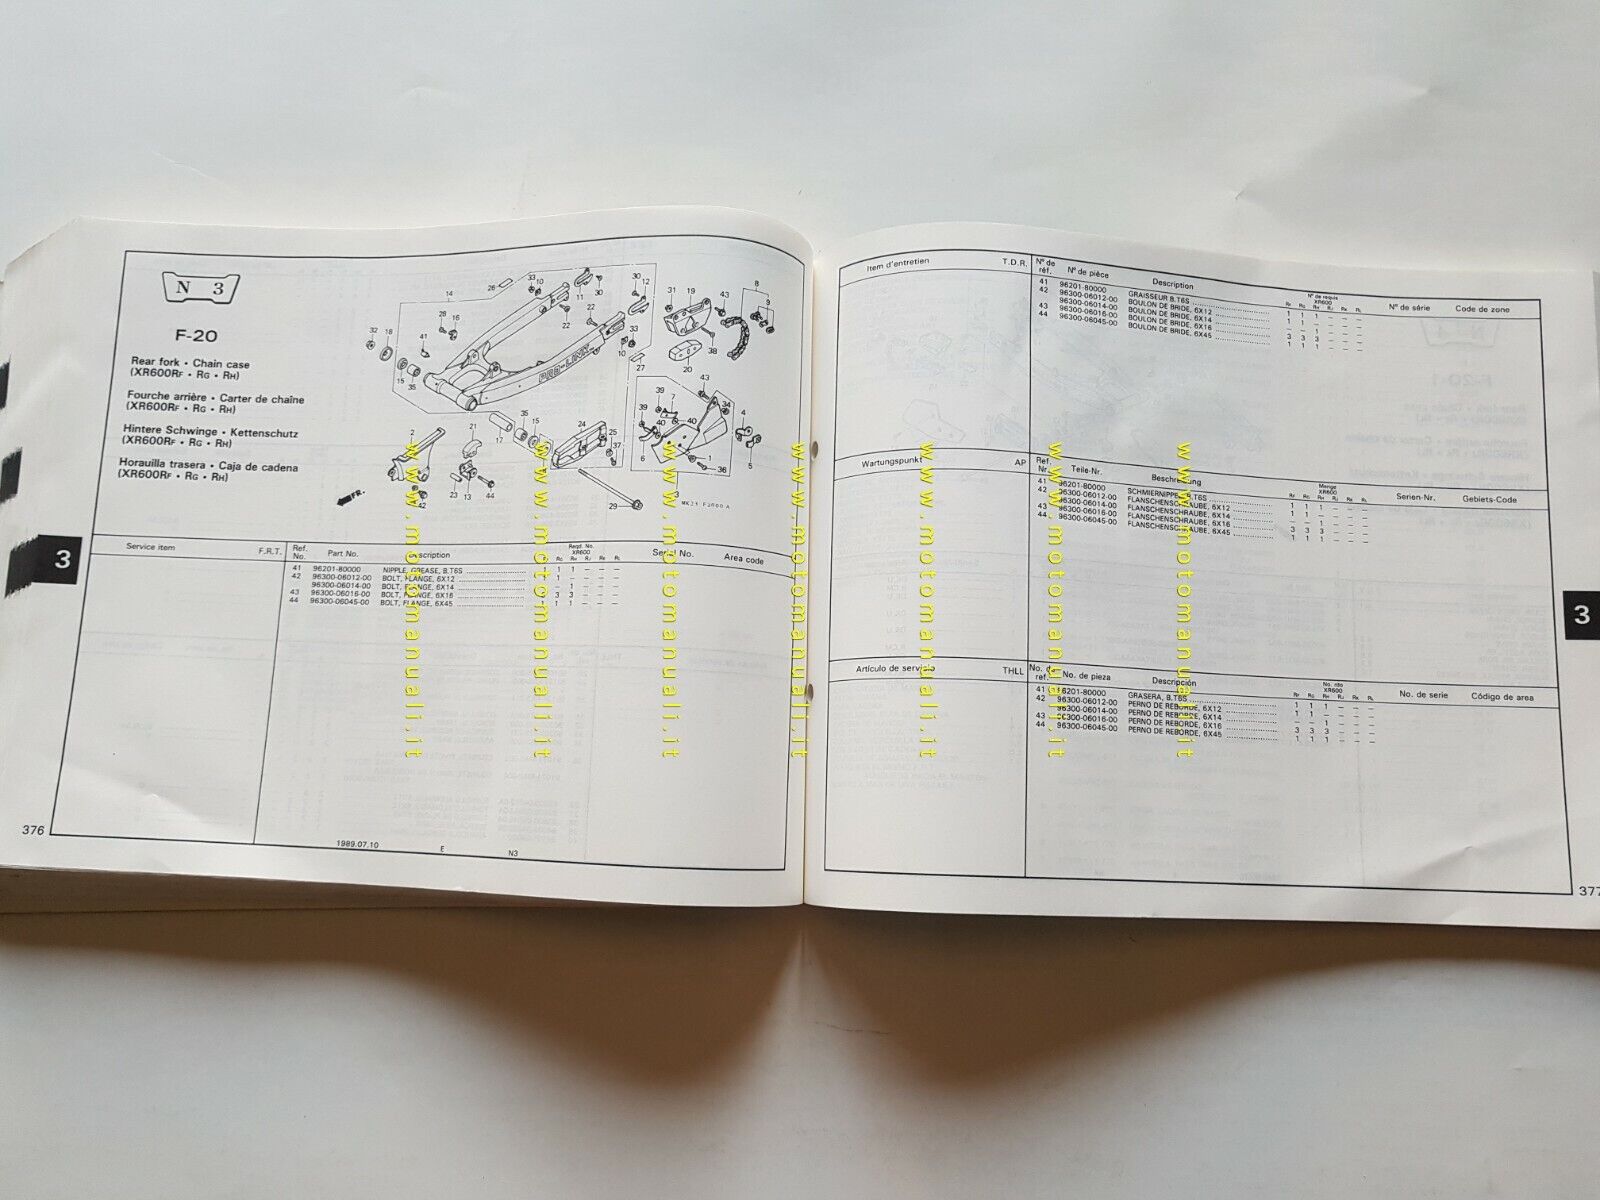 N 3
F-20
Rear fork • Chain case
(XR600RF • RG • RH)
Fourche arrière • Carter de chaîne
(XR600RF • RG • RH)
Hintere Schwinge • Kettenschutz
(XR600RF • RG • RH)
Horauilla trasera • Caja de cadena
(XR600RF • RG • RH)
PRO-LINK
FR.
3
Service item F.R.T. Ref. No. Part No. Description Reqd. No. XR600 Serial No. Area code
41 96201-80000 NIPPLE, GREASE, B.T6S
42 96300-06012-00 BOLT, FLANGE, 6X12
96300-06014-00 BOLT, FLANGE, 6X14
43 96300-06016-00 BOLT, FLANGE, 6X16
44 96300-06045-00 BOLT, FLANGE, 6X45
376
1989.07.10 E N3
Item d'entretien T.D.R. N° de réf. N° de pièce Description N° de requis XR600 N° de série Code de zone
RF RG RH RJ RK RL
41 96201-80000 GRAISSEUR B.T6S
42 96300-06012-00 BOULON DE BRIDE, 6X12
96300-06014-00 BOULON DE BRIDE, 6X14
43 96300-06016-00 BOULON DE BRIDE, 6X16
44 96300-06045-00 BOULON DE BRIDE, 6X45
Wartungspunkt AP Ref. Nr. Teile-Nr. Beschreibung Menge XR600 Serien-Nr. Gebiets-Code
RF RG RH RJ RK RL
41 96201-80000 SCHMIERNIPPEL, B.T6S
42 96300-06012-00 FLANSCHENSCHRAUBE, 6X12
96300-06014-00 FLANSCHENSCHRAUBE, 6X14
43 96300-06016-00 FLANSCHENSCHRAUBE, 6X16
44 96300-06045-00 FLANSCHENSCHRAUBE, 6X45
Artículo de servicio THLL No. de ref. No. de pieza Descripción No. nto XR600 No. de serie Código de area
RF RG RH RJ RK RL
41 96201-80000 GRASERA, B.T6S
42 96300-06012-00 PERNO DE REBORDE, 6X12
96300-06014-00 PERNO DE REBORDE, 6X14
43 96300-06016-00 PERNO DE REBORDE, 6X16
44 96300-06045-00 PERNO DE REBORDE, 6X45
3
377
www.motomanuali.it
www.motomanuali.it
www.motomanuali.it
www.motomanuali.it
www.motomanuali.it
www.motomanuali.it
www.motomanuali.it